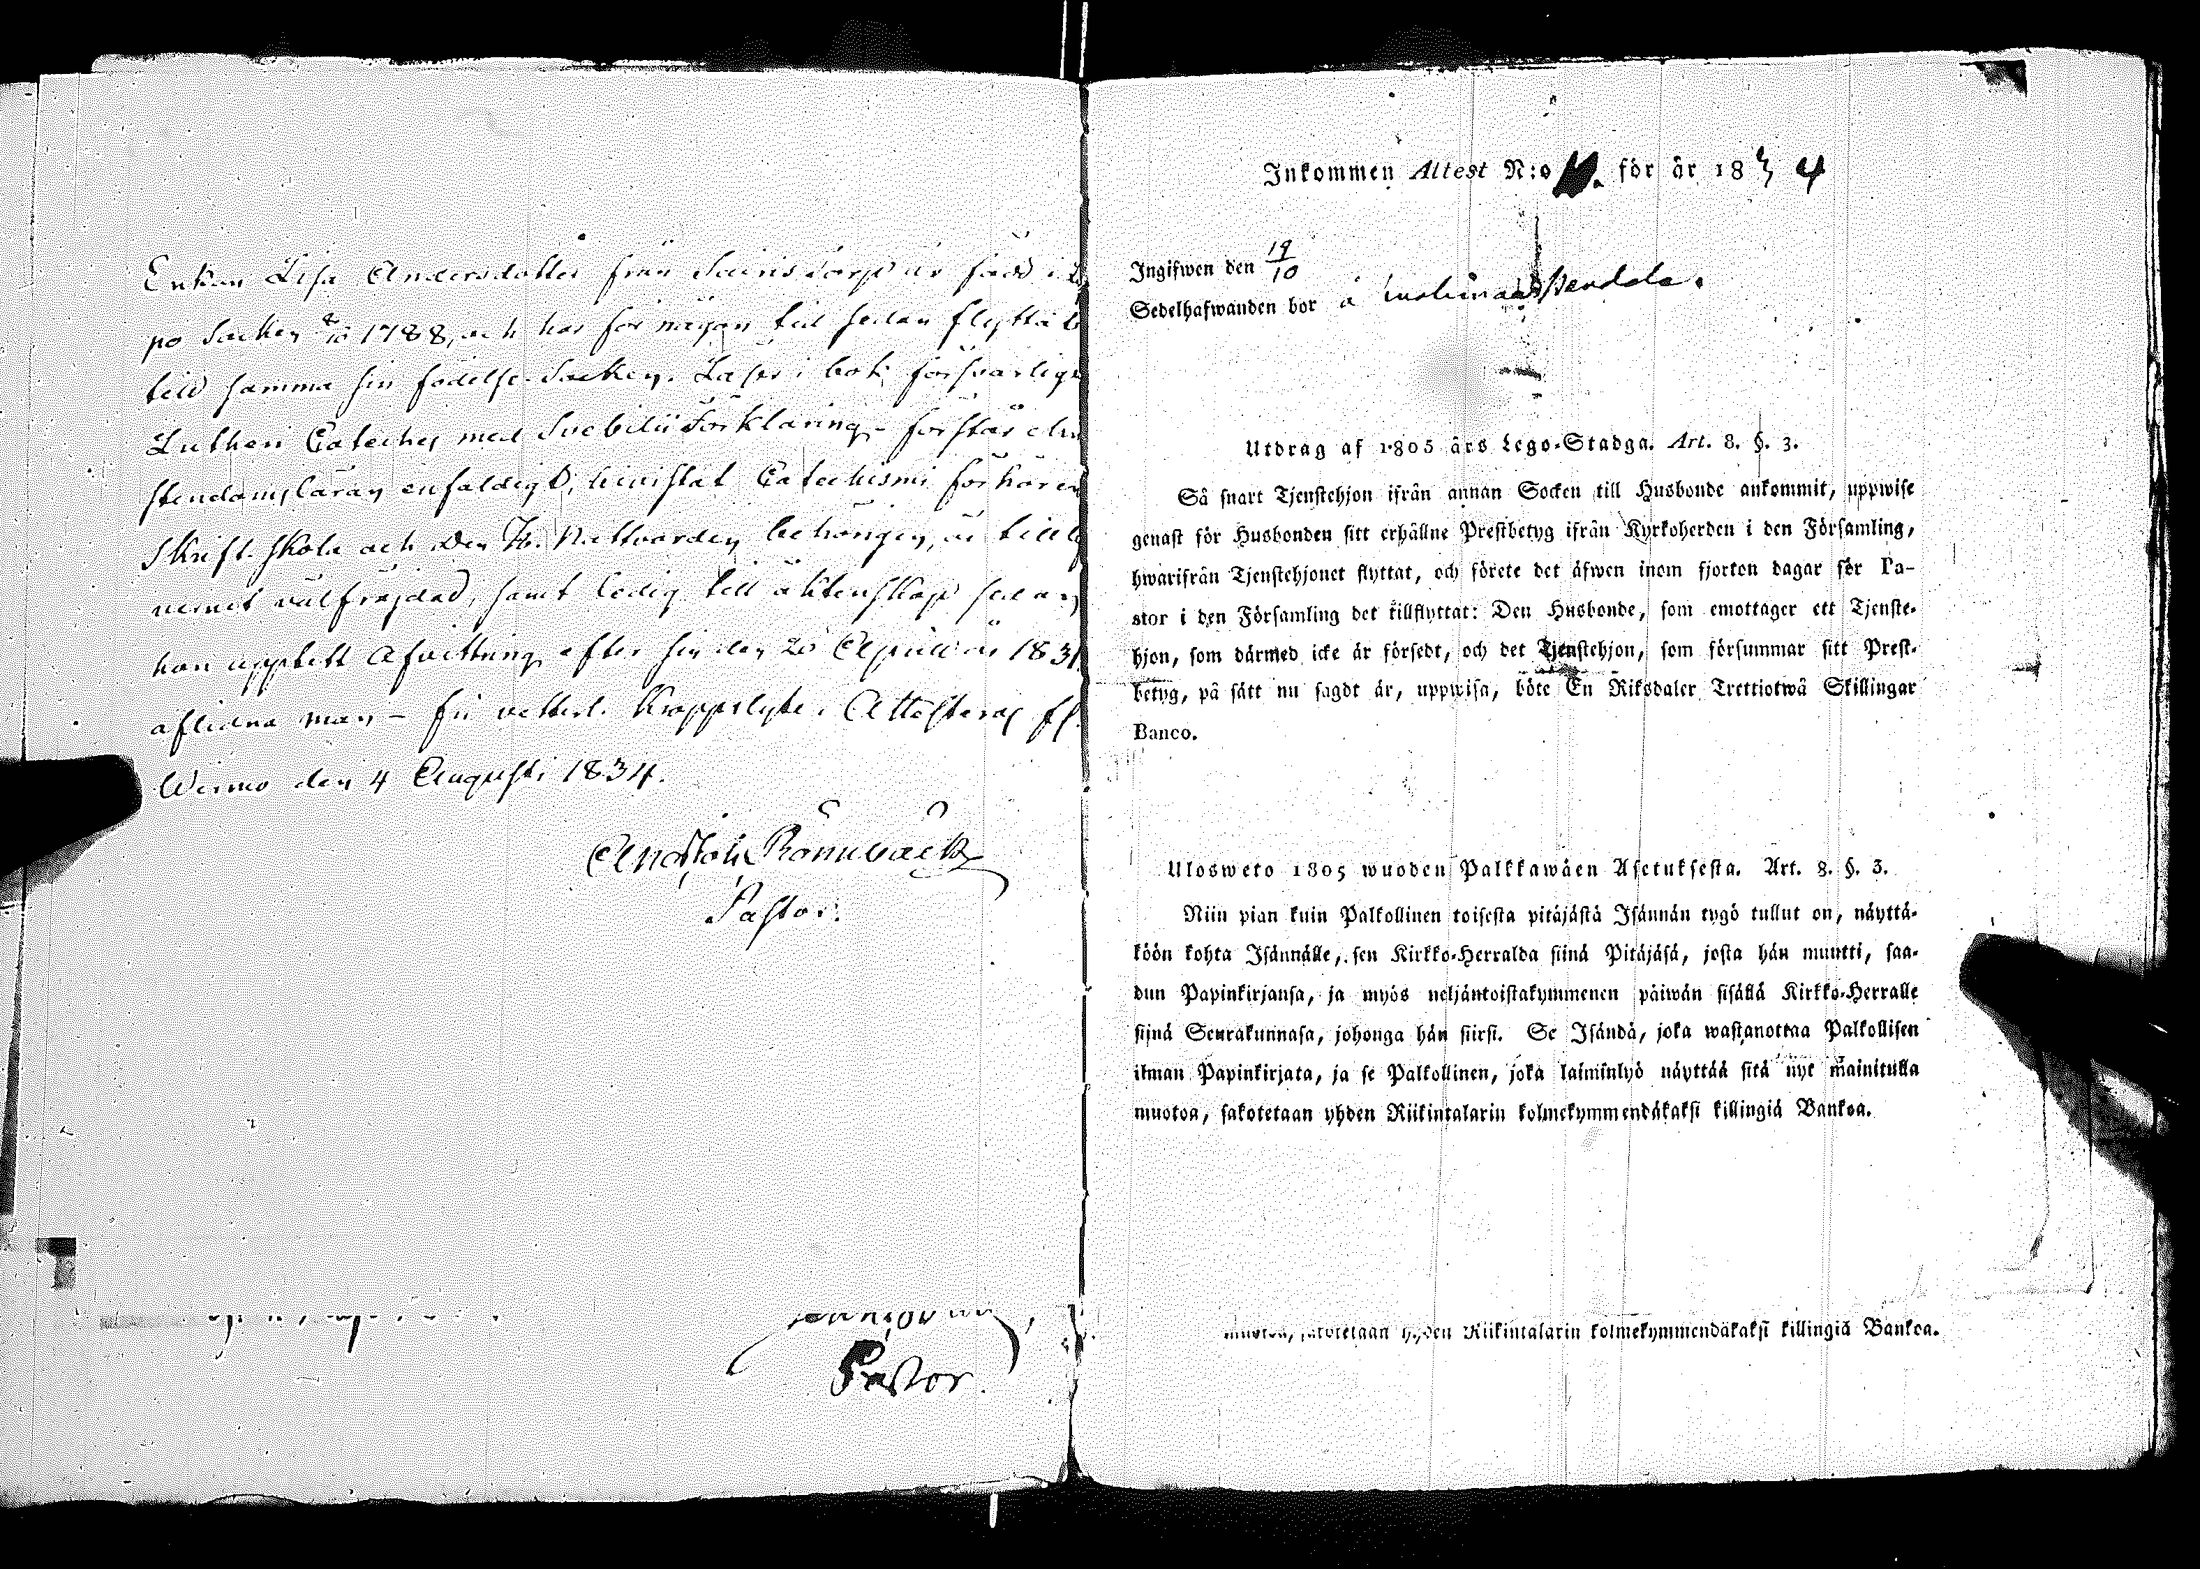 Enkan Lisa Andersdotter från torp är född i
po Socken 1788, och har för någon tid sedan flyttat
till samma sin födelse Socken. Läser i bok försvarligt
Lutheri Cateches med Svebilii Förklaring, förstår
stendomsläran enfaldigt, bivistat Catechismi förhören
Skrift-skola och Den H. Nattvarden behörigen, är till
vernet välfräjdad, samt ledig till äktenskap sedan
hon upptett Afvittring efter sin den 20 April år 183
aflidna man – fri vetterl. kroppslyte. Attesteras
Wirmo den 4 Augusti 1834.
Rönnbäck
Pastor.
Pastor.
Inkommen Attest N:o för år 1834
Ingifwen den 19/10
Sedelhafwanden bor å
Utdrag af 1805 års Lego-Stadga. Art. 8. §. 3.
Så snart Tjenstehjon ifrån annan Socken till Husbonde ankommit, uppwise
genast för Husbonden sitt erhållne Prestbetyg ifrån Kyrkoherden i den Församling,
hwarifrån Tjenstehjonet flyttat, och förete det äfwen inom fjorton dagar för Pa-
stor i den Församling det tillflyttat: Den Husbonde, som emottager ett Tjenste-
hjon, som därmed icke är försedt, och det Tjenstehjon, som försummar sitt Prest-
betyg, på sätt nu sagdt är, uppwisa, böte En Riksdaler Trettiotwå Skillingar
Banco.
Ulosweto 1805 wuoden Palkkawäen Asetuksesta. Art. 8. §. 3.
Niin pian kuin Palkollinen toisesta pitäjästä Isännän tygö tullut on, näyttä-
köön kohta Isännälle, sen Kirkko-Herralda siinä Pitäjäsä, josta hän muutti, saa-
dun Papinkirjansa, ja myös neljäntoistakymmenen päiwän sisällä Kirkko-Herralle
siinä Seurakunnasa, johonga hän siirsi. Se Isändä, joka wastanottaa Palkollisen
ilman Papinkirjata, ja se Palkollinen, joka laiminlyö näyttää sitä nyt mainitulla
muotoa, sakotetaan yhden Riikintalarin kolmekymmendäkaksi killingiä Bankoa.
muotoa, sakotetaan yhden Riikintalarin kolmekymmendäkaksi killingiä Bankoa.